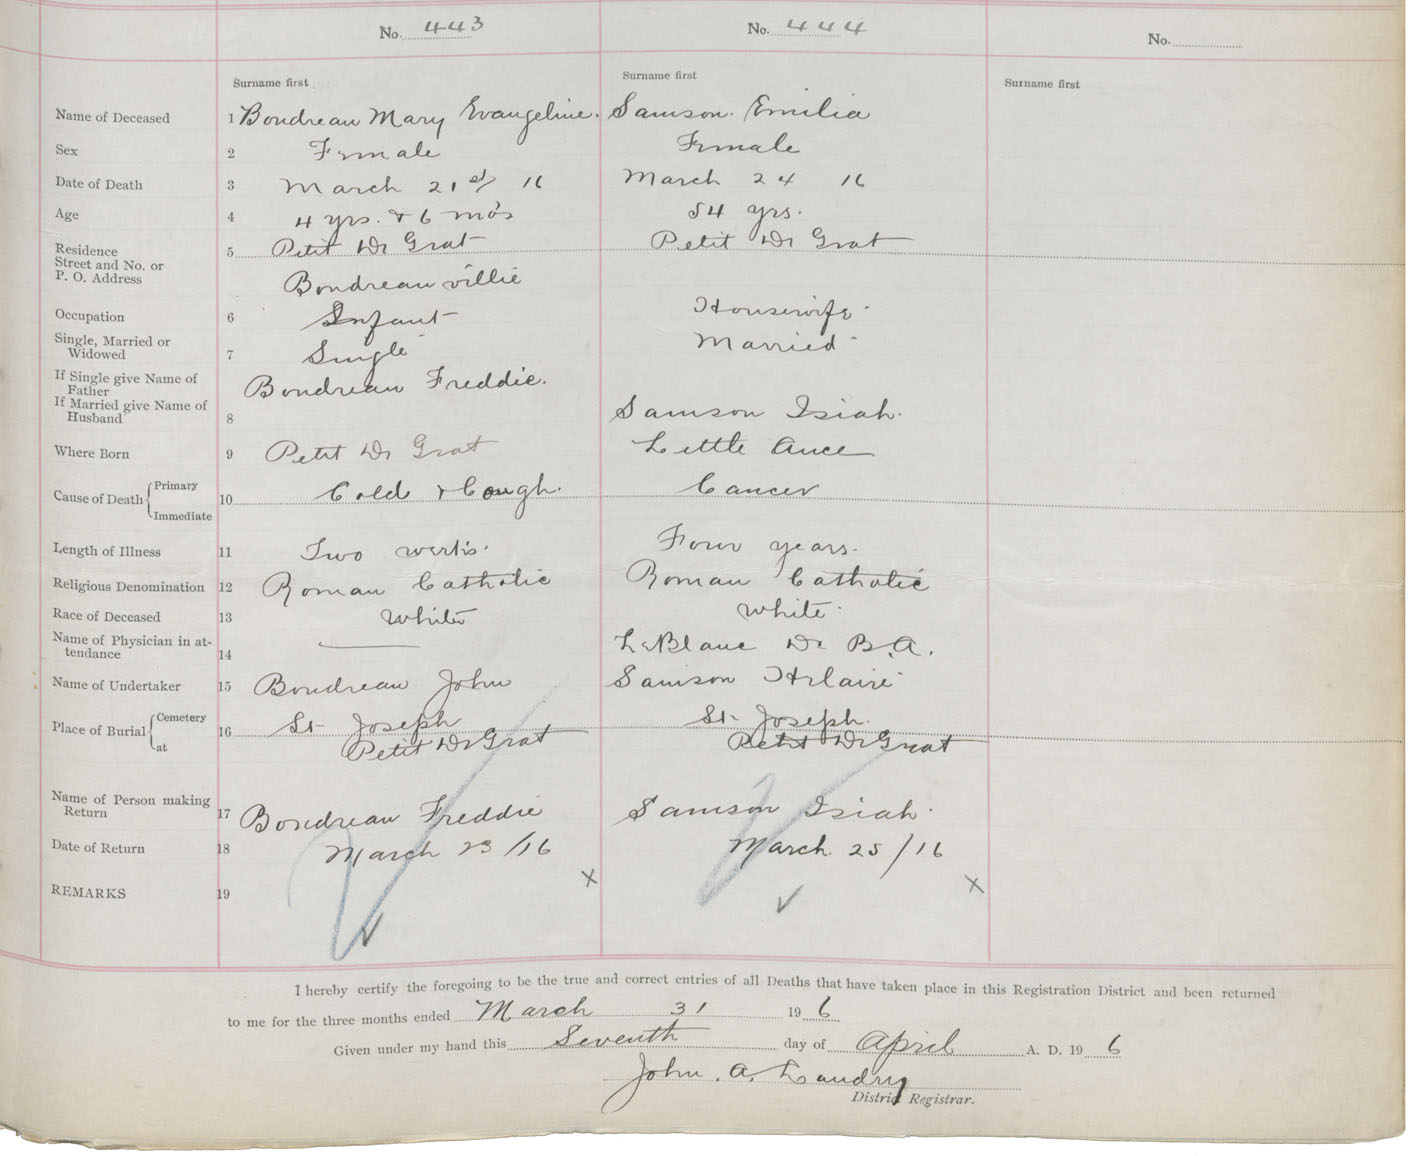 No. 443 No. 444 No.
Surname first Surname first Surname first
Name of Deceased 1 Boudreau Mary Evangeline. Samson. Emilia
Sex 2 Female Female
Date of Death 3 March 21st 16 March 24 16
Age 4 4 yrs. & 6 mo's 54 yrs.
Residence 5 Petit De Grat Petit De Grat
Street and No. or
P. O. Address Boudreauvillie
Occupation 6 Infant Housewife
Single, Married or
Widowed 7 Single Married
If Single give Name of
Father Boudreau Freddie.
If Married give Name of
Husband 8 Samson Isiah.
Where Born 9 Petit De Grat Little Ance
Cause of Death Primary
10 Cold & Cough. Cancer
Immediate
Length of Illness 11 Two Four years.
Religious Denomination 12 Roman Catholic Roman Catholic
Race of Deceased 13 White White
Name of Physician in at-
tendance 14 LeBlanc Dr B.A.
Name of Undertaker 15 Boudreau John Samson Hilaire
Place of Burial Cemetery 16 St- Joseph St- Joseph.
at Petit De Grat Petit De Grat
Name of Person making
Return 17 Boudreau Freddie Samson Isiah.
Date of Return 18 March 23/16 March. 25/16
REMARKS 19 x x
I hereby certify the foregoing to be the true and correct entries of all Deaths that have taken place in this Registration District and been returned
to me for the three months ended March 31 19 6
Given under my hand this Seventh day of April A. D. 19 6
John. A. Landry
District Registrar.